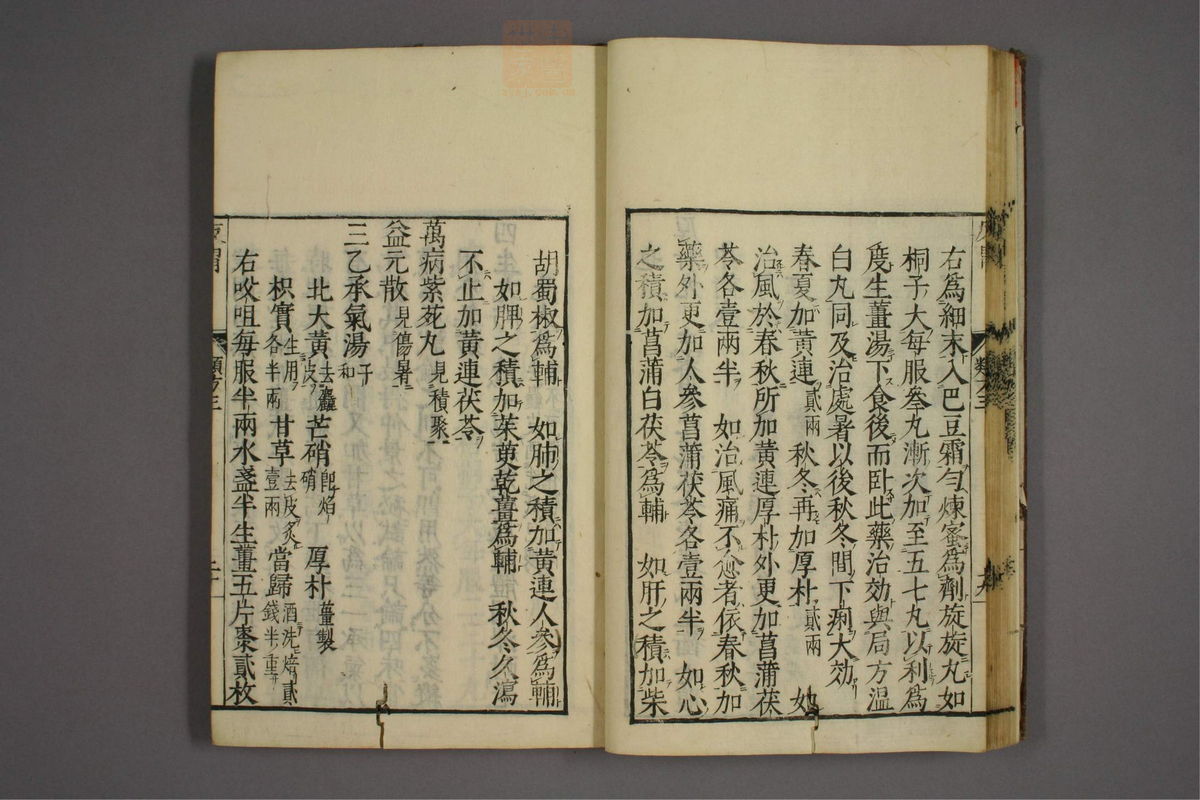 右爲細末入巴豆霜勻煉蜜爲劑旋旋丸如
桐子大每服叄丸漸次加至五七丸以利爲
度生薑湯下食後而卧此藥治効與局方溫
白丸同及治處暑以後秋冬間下痢大効
春夏加黃連貳兩 秋冬再加厚朴貳兩 如
治風於春秋所加黃連厚朴外更加菖蒲茯
苓各壹兩半 如治風痛不愈者依春秋加
藥外更加人參菖蒲茯苓各壹兩半 如心
之積加菖蒲白茯苓爲輔 如肝之積加柴
胡蜀椒爲輔 如肺之積加黃連人參爲輔
如脾之積加茱萸乾薑爲輔 秋冬久瀉
不止加黃連茯苓
萬病紫菀丸見積聚
益元散見傷暑
三乙承氣湯子和
北大黃去麤皮 芒硝卽焰硝 厚朴薑製
枳實生用各半兩 甘草去皮炙壹兩 當歸酒洗焙貳錢半重
右㕮咀每服半兩水盞半生薑五片棗貳枚